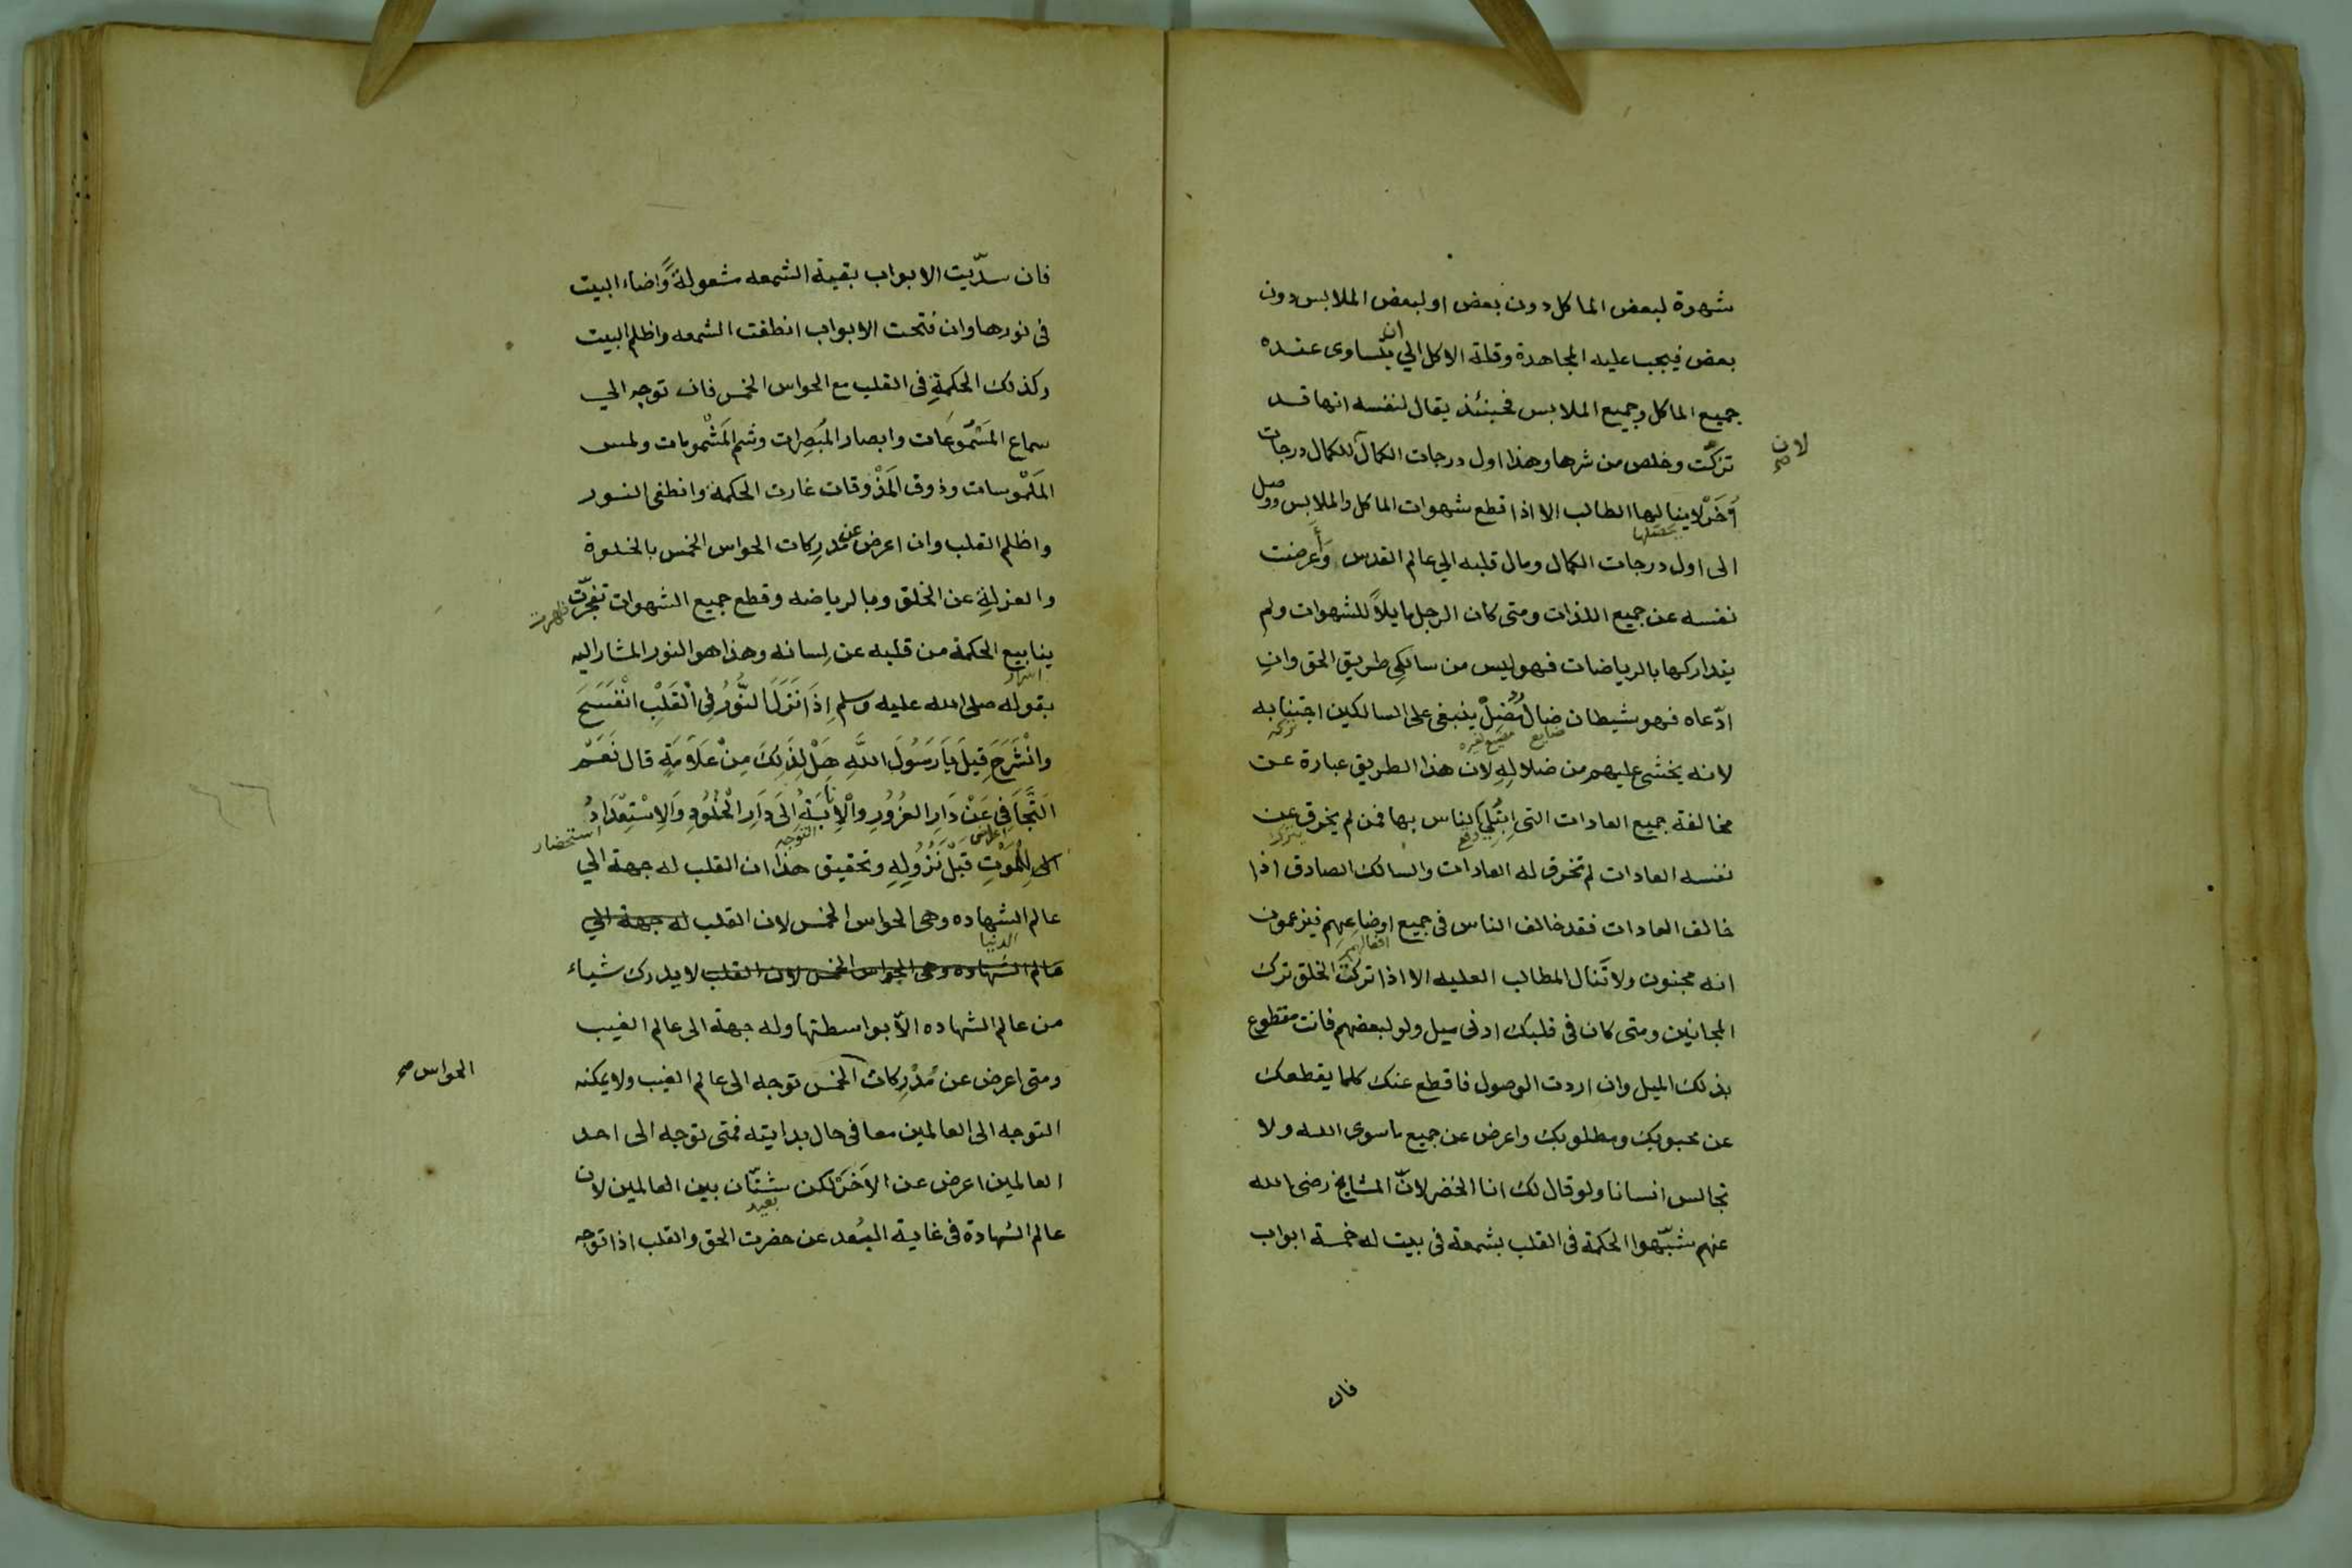 شهوة لبعض الماكل دون بعض او لبعض الملابس دون
بعض فيجب عليه المجاهدة وقلة الاكل الي ان يتساوى عنده
جميع الماكل وجميع الملابس فحينئذ يقال لنفسه انها قد
تزكّت وخلص من شرها وهذا اول درجات الكمال للكمال درجات
لان صح
أُخَرْ لا ينالها الطالب الا اذا قطع شهوات الماكل والملابس ووصل
الى اول درجات الكمال ومال قلبه الي عالم القدس وَأعرضت
نفسه عن جميع اللذات ومتى كان الرجل مايلاً للشهوات ولم
يتداركها بالرياضات فهو ليس من سالكي طريق الحق وانِ
ادّعاه فهو شيطان ضال مُضِلّ ينبغى على السالكين اجتنابه
ضايع مضيع لغيره
لانه يخشى عليهم من ضلالِهِ لان هذا الطريق عبارة عن
مخالفة جميع العادات التى اِبتُلِيَ الناس بها فمن لم يخرق عن
نفسه العادات لم تخرق له العادات والسالك الصادق اذا
خالف العادات فقد خالف الناس فى جميع اوضاعِهِم فيزعمون
افعالهم
انه مجنون ولا تَنال المطالب العليه الا اذا تركتَ الخلق ترك
المجانين ومتى كان فى قلبك ادنى ميل ولو لبعضهم فانت مقطوع
بذلك الميل وان اردت الوصول فاقطع عنك كلما يقطعك
عن محبوبك ومطلوبك واعرض عن جميع ما سوى الله ولا
تجالس انسانا ولو قال لك انا الخضر لانّ المشايخ رضى الله
عنهم شبّهوا الحكمة فى القلب بشمعة فى بيت له خمسة ابواب
فان
فان سدّيت الابواب بقية الشمعه شعولةً وَّاضاء البيت
فى نورها وان فُتحت الابواب انطفت الشمعه واظلم البيت
وكذلك الحكمةِ فى القلب مع الحواس الخمس فان توجه الي
سماع المَسْمُوعَات وابصار المُبَصِرات وشم المَشْمومات ولمس
المَلَمْوسات وذوق المَذْوقات غارت الحكمة وانطفى النور
واظلم القلب وان اعرض عن مدرِكات الحواس الخمس بالخلوة
والعزلةِ عن الخلق وبالرياضه وقطع جميع الشهوات تفجّرت
ظهرت
ينابيع الحكمة من قلبه عن لِسانه وهذا هو النور المشار اليه
بقوله صلى الله عليه وسلم اِذَا نَزَلَ النُّورُ فِى الْقَلْبِ انْفَسَحَ
وانْشَرَحَ قِيلَ يَا رَسُولَ اللَّهِ هَلْ لِذَلِكَ مِنْ عَلَامَةٍ قال نَعَمْ
اَلتَّجَافِى عَنْ دَارِ الغُرُورِ والْاِنَابَةُ اِلَى دَارِ الْخُلُودِ وَالِاسْتِعْدَادُ
التوجه
استحضار
لِلْمَوْتِ قَبْلَ نُزُولِهِ وتحقيق هذا ان القلب له جهة الي
عالم الشهاده وهى الحواس الخمس لان القلب له جهة الي
الدنيا
عالم الشهاده وهى الحواس الخمس لان القلب لا يدرك شياء
من عالم الشهاده الّا بواسطتها وله جهة الى عالم الغيب
ومتى اعرض عن مُدْرِكات الخمس توجه الى عالم الغيب ولا يمكنه
الحواس صح
التوجه الى العالمين معا فى حال بدايته فمتى توجه الى احد
العالمين اعرض عن الآخَرْ لكن شتّان بين العالمين لان
بعيد
عالم الشهادة فى غاية البُعد عن حضرت الحق والقلب اذا توجه